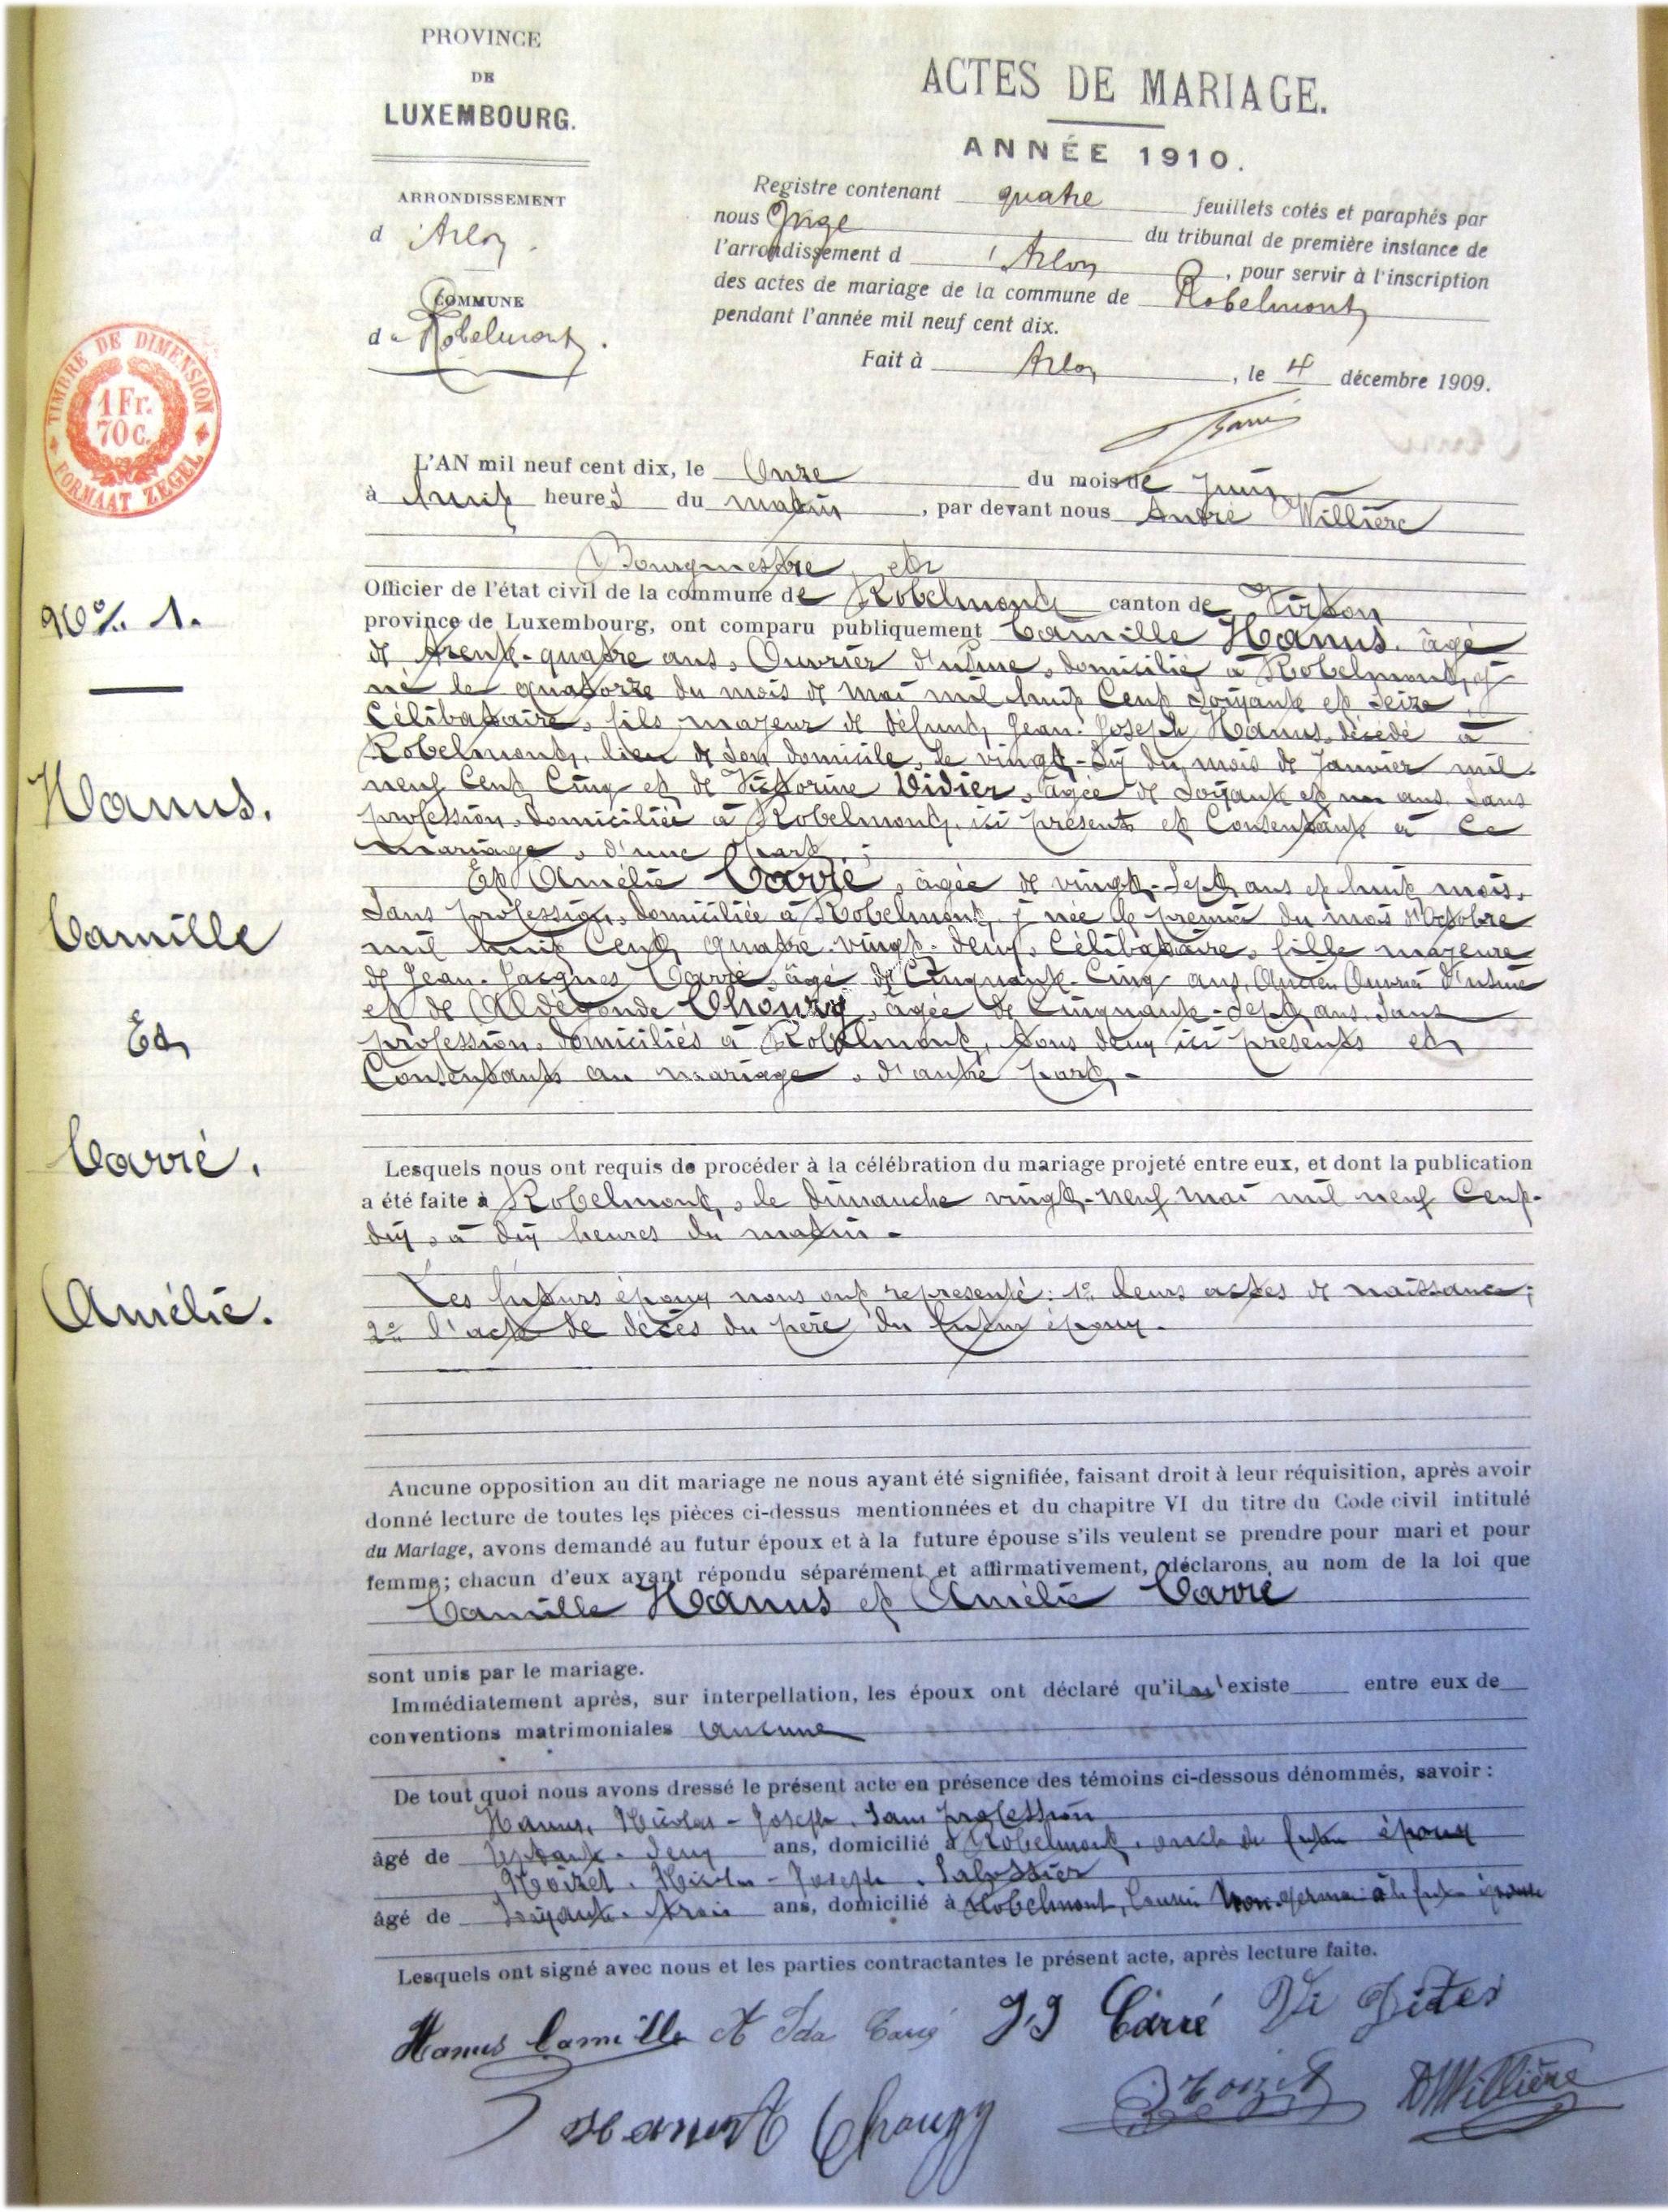 PROVINCE
DE
LUXEMBOURG.
ARRONDISSEMENT
d'Arlon.
COMMUNE
de Robelmont.
TIMBRE DE DIMENSION
1 Fr.
70 C.
FORMAAT ZEGEL
ACTES DE MARIAGE.
ANNÉE 1910.
Registre contenant quatre feuillets cotés et paraphés par
nous Juge du tribunal de première instance de
l'arrondissement d'Arlon, pour servir à l'inscription
des actes de mariage de la commune de Robelmont
pendant l'année mil neuf cent dix.
Fait à Arlon, le 4 décembre 1909.
N° 1.
Hanus.
Camille
Et
Carré.
Amélie.
L'AN mil neuf cent dix, le Onze du mois de Juin
à huit heures du matin, par devant nous André Willière
Bourgmestre et
Officier de l'état civil de la commune de Robelmont canton de Virton
province de Luxembourg, ont comparu publiquement Camille Hanus. âgé
de trente-quatre ans, Ouvrier d'usine, domicilié à Robelmont, y
né le quatorze du mois de mai mil huit Cent soixante et seize,
Célibataire, fils majeur de défunt Jean-Joseph Hanus, décédé à
Robelmont, lieu de son domicile, le vingt-six du mois de Janvier mil
neuf Cent Cinq et de Victorine Didier, âgée de soixante et un ans, sans
profession, domiciliée à Robelmont, ici présente et Consentante à ce
mariage, d'une part;
Et Amélie Carré, âgée de vingt-sept ans et huit mois,
sans profession, domiciliée à Robelmont, y née le premier du mois d'Octobre
mil huit Cent quatre-vingt-deux, Célibataire, fille majeure
de Jean-Jacques Carré, âgé de Cinquante-Cinq ans, Ancien Ouvrier d'usine
et de Aldegonde Choury, âgée de Cinquante-sept ans, sans
profession, domiciliés à Robelmont, tous deux ici présents et
Consentants au mariage, d'autre part.-
Lesquels nous ont requis de procéder à la célébration du mariage projeté entre eux, et dont la publication
a été faite à Robelmont, le dimanche vingt-neuf mai mil neuf Cent-
dix, à dix heures du matin.-
Les futurs époux nous ont représenté: 1° leurs actes de naissance;
2° l'acte de décès du père du futur époux.-
Aucune opposition au dit mariage ne nous ayant été signifiée, faisant droit à leur réquisition, après avoir
donné lecture de toutes les pièces ci-dessus mentionnées et du chapitre VI du titre du Code civil intitulé
du Mariage, avons demandé au futur époux et à la future épouse s'ils veulent se prendre pour mari et pour
femme; chacun d'eux ayant répondu séparément et affirmativement, déclarons, au nom de la loi que
Camille Hanus et Amélie Carré
sont unis par le mariage.
Immédiatement après, sur interpellation, les époux ont déclaré qu'il n'existe entre eux de
conventions matrimoniales aucune
De tout quoi nous avons dressé le présent acte en présence des témoins ci-dessous dénommés, savoir:
Hanus, Nicolas-Joseph, sans profession
âgé de septante-deux ans, domicilié à Robelmont, oncle du futur époux
Noizet, Nicolas-Joseph, Sabottier
âgé de soixante-trois ans, domicilié à Robelmont, Cousin non-germain à la future épouse
Lesquels ont signé avec nous et les parties contractantes le présent acte, après lecture faite.
Hanus Camille A Ida Carré J.J Carré Vi Didier
Hanus A Choury Noizet AWillière